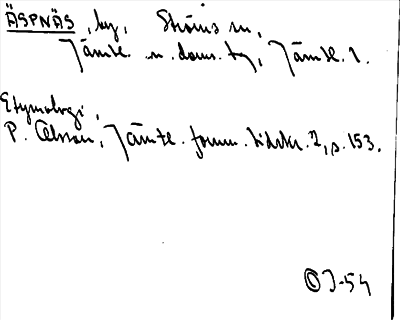 ÄSPNÄS, by, Ströms sn,
Jämtl. n. doms. tg, Jämtl. l.
Etymologi,
P. Olsson, Jämtl. fornm. tidskr. 2, s. 153.
OJ-54